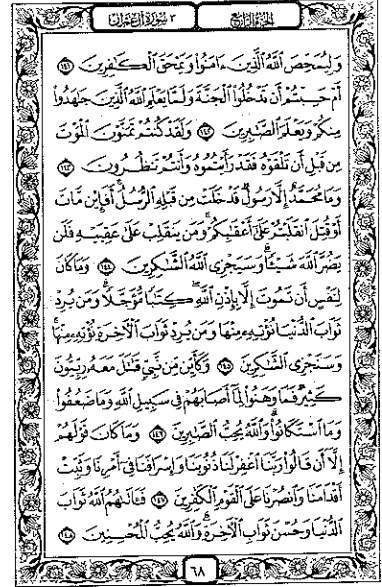 الجزء الرابع
٣ سورة آل عمران
وَلِيُمَحِّصَ اللَّهُ الَّذِينَ ءَامَنُوا وَيَمْحَقَ الْكَٰفِرِينَ ١٤١
أَمْ حَسِبْتُمْ أَن تَدْخُلُوا الْجَنَّةَ وَلَمَّا يَعْلَمِ اللَّهُ الَّذِينَ جَٰهَدُوا
مِنكُمْ وَيَعْلَمَ الصَّٰبِرِينَ ١٤٢ وَلَقَدْ كُنتُمْ تَمَنَّوْنَ الْمَوْتَ
مِن قَبْلِ أَن تَلْقَوْهُ فَقَدْ رَأَيْتُمُوهُ وَأَنتُمْ تَنظُرُونَ ١٤٣
وَمَا مُحَمَّدٌ إِلَّا رَسُولٌ قَدْ خَلَتْ مِن قَبْلِهِ الرُّسُلُ أَفَإِيْن مَّاتَ
أَوْ قُتِلَ انقَلَبْتُمْ عَلَىٰ أَعْقَٰبِكُمْ وَمَن يَنقَلِبْ عَلَىٰ عَقِبَيْهِ فَلَن
يَضُرَّ اللَّهَ شَيْـًٔا وَسَيَجْزِى اللَّهُ الشَّٰكِرِينَ ١٤٤ وَمَا كَانَ
لِنَفْسٍ أَن تَمُوتَ إِلَّا بِإِذْنِ اللَّهِ كِتَٰبًا مُّؤَجَّلًا وَمَن يُرِدْ
ثَوَابَ الدُّنْيَا نُؤْتِهِ مِنْهَا وَمَن يُرِدْ ثَوَابَ الْءَاخِرَةِ نُؤْتِهِ مِنْهَا
وَسَنَجْزِى الشَّٰكِرِينَ ١٤٥ وَكَأَيِّن مِّن نَّبِىٍّ قَٰتَلَ مَعَهُ رِبِّيُّونَ
كَثِيرٌ فَمَا وَهَنُوا لِمَا أَصَابَهُمْ فِى سَبِيلِ اللَّهِ وَمَا ضَعُفُوا
وَمَا اسْتَكَانُوا وَاللَّهُ يُحِبُّ الصَّٰبِرِينَ ١٤٦ وَمَا كَانَ قَوْلَهُمْ
إِلَّا أَن قَالُوا رَبَّنَا اغْفِرْ لَنَا ذُنُوبَنَا وَإِسْرَافَنَا فِى أَمْرِنَا وَثَبِّتْ
أَقْدَامَنَا وَانصُرْنَا عَلَى الْقَوْمِ الْكَٰفِرِينَ ١٤٧ فَـَٔاتَىٰهُمُ اللَّهُ ثَوَابَ
الدُّنْيَا وَحُسْنَ ثَوَابِ الْءَاخِرَةِ وَاللَّهُ يُحِبُّ الْمُحْسِنِينَ ١٤٨
٦٨